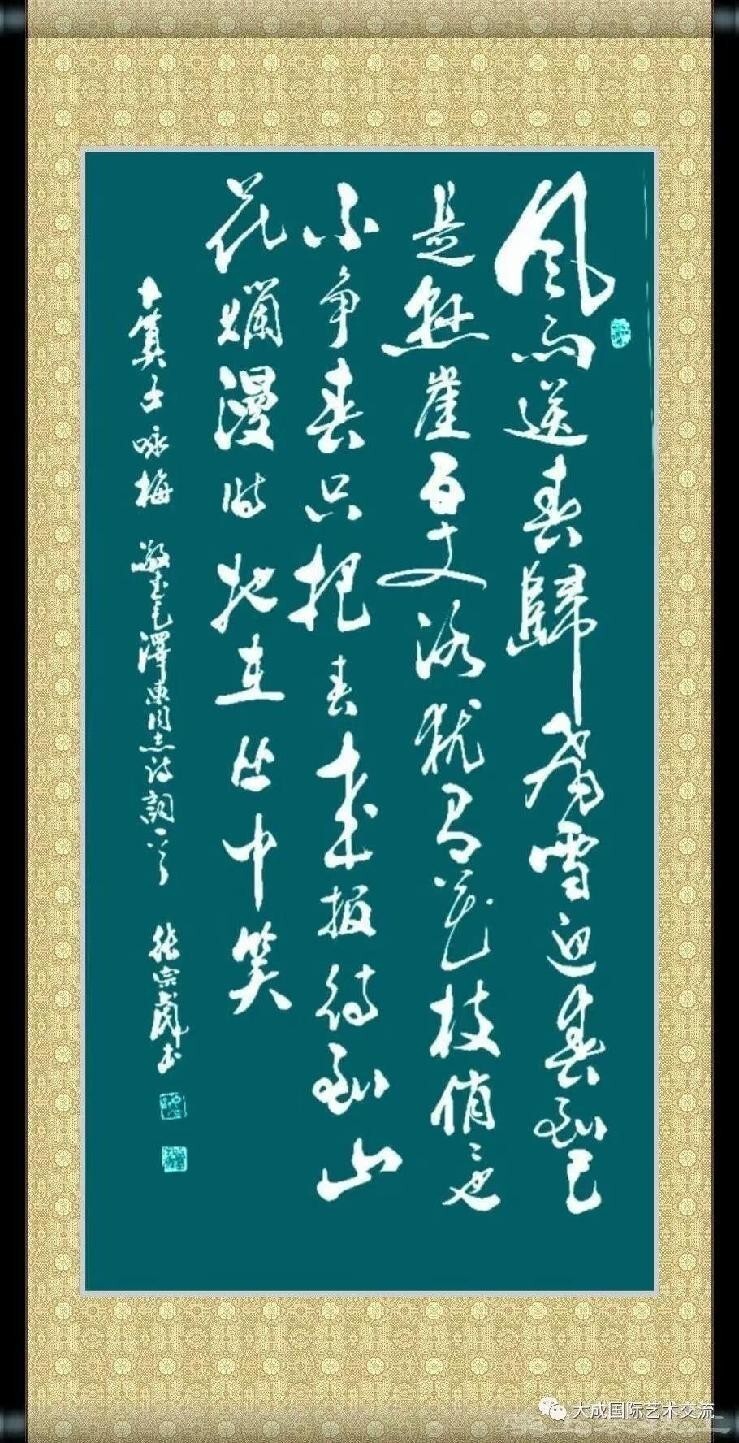 風雨送春歸飛雪迎春到已
是懸崖百丈冰猶有花枝俏〻也
不争春只把春來報待到山
花爛漫時她在丛中笑
卜算子咏梅 敬书毛澤東同志诗詞一首 張宗书
大成国际艺术交流